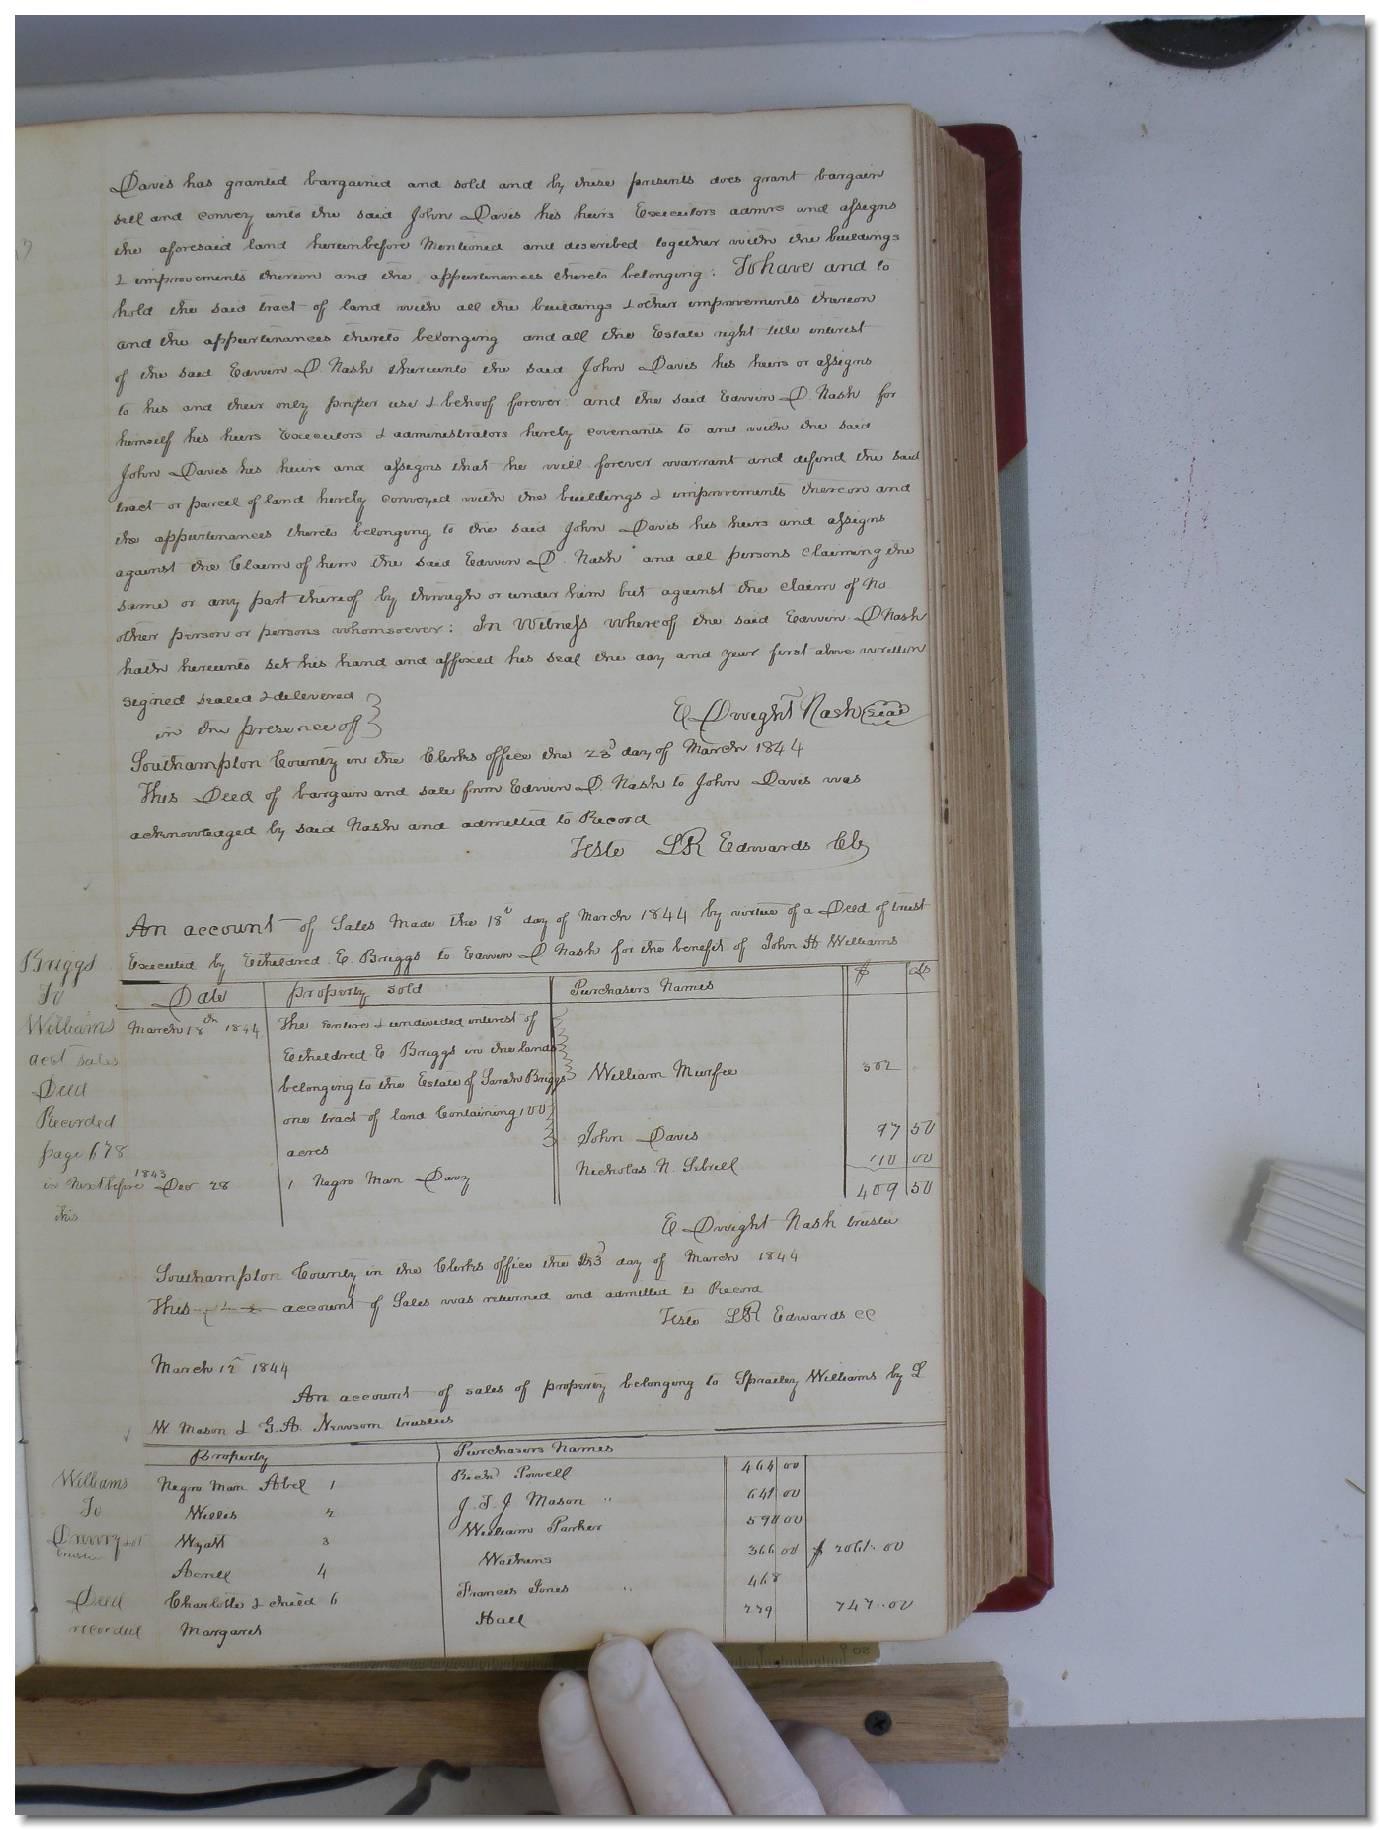 Davis has granted bargained and sold and by these presents does grant bargain
sell and convey unto the said John Davis his heirs Executors admrs and assigns
the aforesaid land hereinbefore Mentioned and discribed together with the buildings
& improvements thereon and the appurtenances thereto belonging: To have and to
hold the said tract of land with all the buildings & other improvements thereon
and the appurtenances thereto belonging and all the Estate right title interest
of the said Edwin D. Nash thereunto the said John Davis his heirs or assigns
to his and their only proper use & behoof forever. and the said Edwin D. Nash for
himself his heirs Executors & administrators hereby covenants to and with the said
John Davis his heirs and assigns that he will forever warrant and defend the said
tract or parcel of land hereby conveyed with the buildings & improvements thereon and
the appurtenances thereto belonging to the said John Davis his heirs and assigns
against the Claim of him the said Edwin D. Nash and all persons claiming the
same or any part thereof by through or under him but against the claim of No
other person or persons whomsoever: In Witness Whereof the said Edwin D Nash
hath hereunto set his hand and affixed his seal the day and year first above written
signed sealed & delivered
in the presence off
E Dwight Nash Seal
Southampton County in the Clerks office the 23d day of March 1844
This Deed of bargain and sale from Edwin D. Nash to John Davis was
acknowledged by said Nash and admitted to Record
Teste LR Edwards Clk
An account of Sales Made the 18th day of March 1844 by virtue of a Deed of trust
Executed by Etheldred E. Briggs to Edwin D Nash for the benefit of John H Williams
Briggs
To
Williams
acct sales
Deed
Recorded
page 678
is Next before
this
Date Property sold Purchasers Names $ cts
March 18th 1844 The entire & undivided interest of
Etheldred E Briggs in the lands
belonging to the Estate of Sarah Briggs William Murfee 302
one tract of land Containing 100
acres John Davis 97 50
1843 Dec 28 1 Negro Man Davy Nicholas N. Sebrell 110 00
409 50
E Dwight Nash trustee
Southampton County in the Clerks office the 23d day of March 1844
This account of Sales was returned and admitted to Record
Teste LR Edwards CC
March 12th 1844
An account of sales of property belonging to Spratley Williams by L
W Mason & G.A. Newsom trustees
Williams
To
trustee
Deed
recorded
Property Purchasers Names
Negro Man Abel 1 Richd Powell 464 00
Willis 2 J. T. J Mason " 641 00
Wyatt 3 William Parker 590 00
4 Watkins 366 00 $ 2061.00
Charlotte & child 6 Frances Jones " 468
Margaret Hall 279 747.00